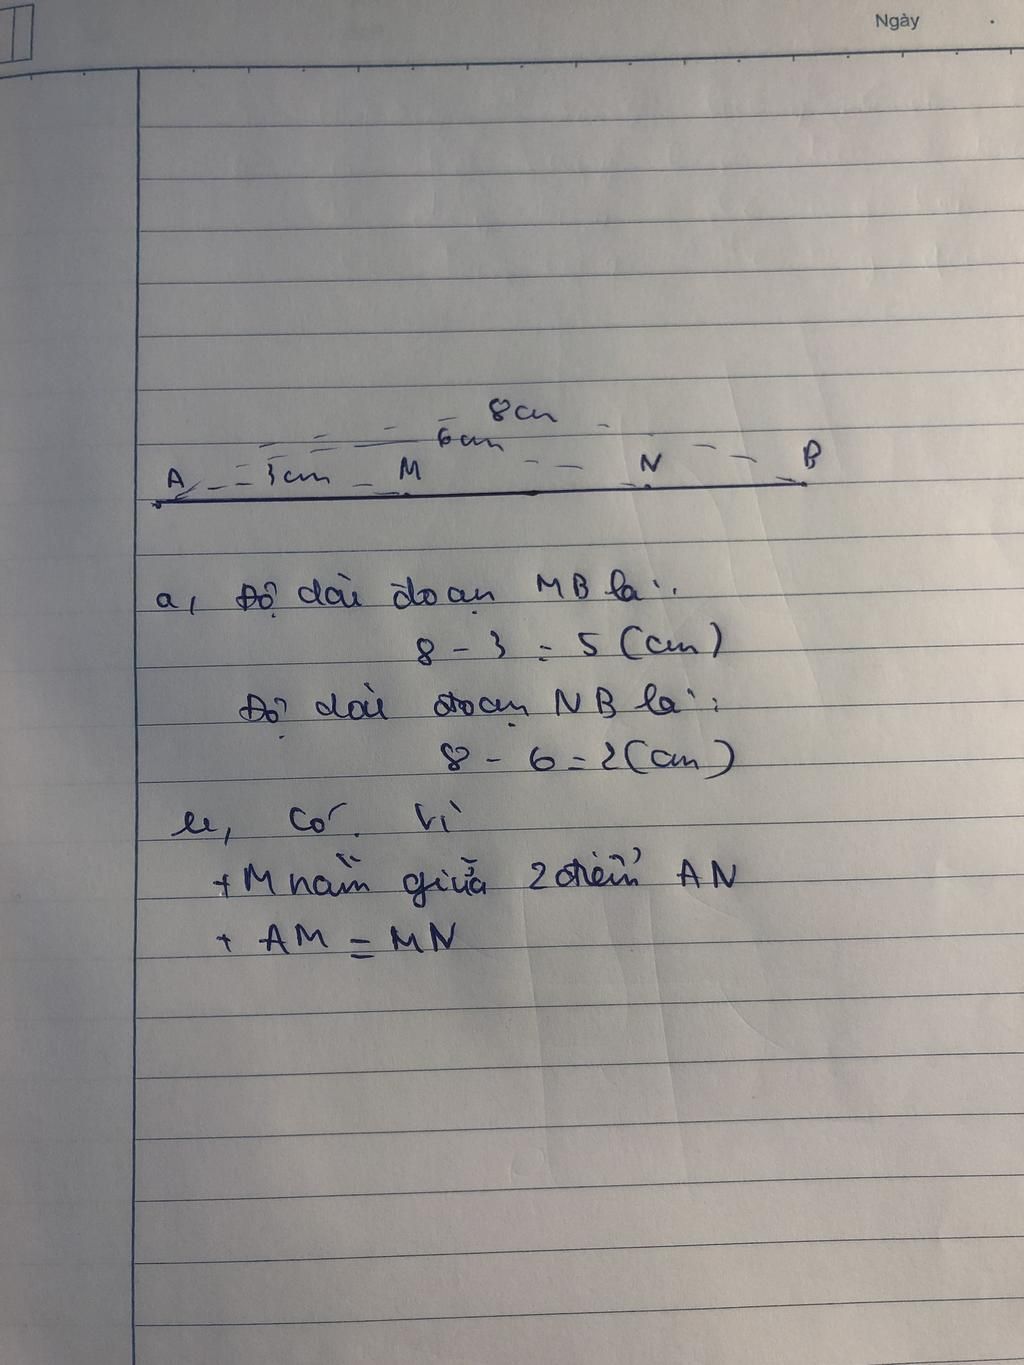 Ngày
8cm
6cm
A 3cm M N B
a, Độ dài đoạn MB là:
8 - 3 = 5 (cm)
Độ dài đoạn NB là:
8 - 6 = 2 (cm)
b, Có. Vì
+ M nằm giữa 2 điểm AN
+ AM = MN